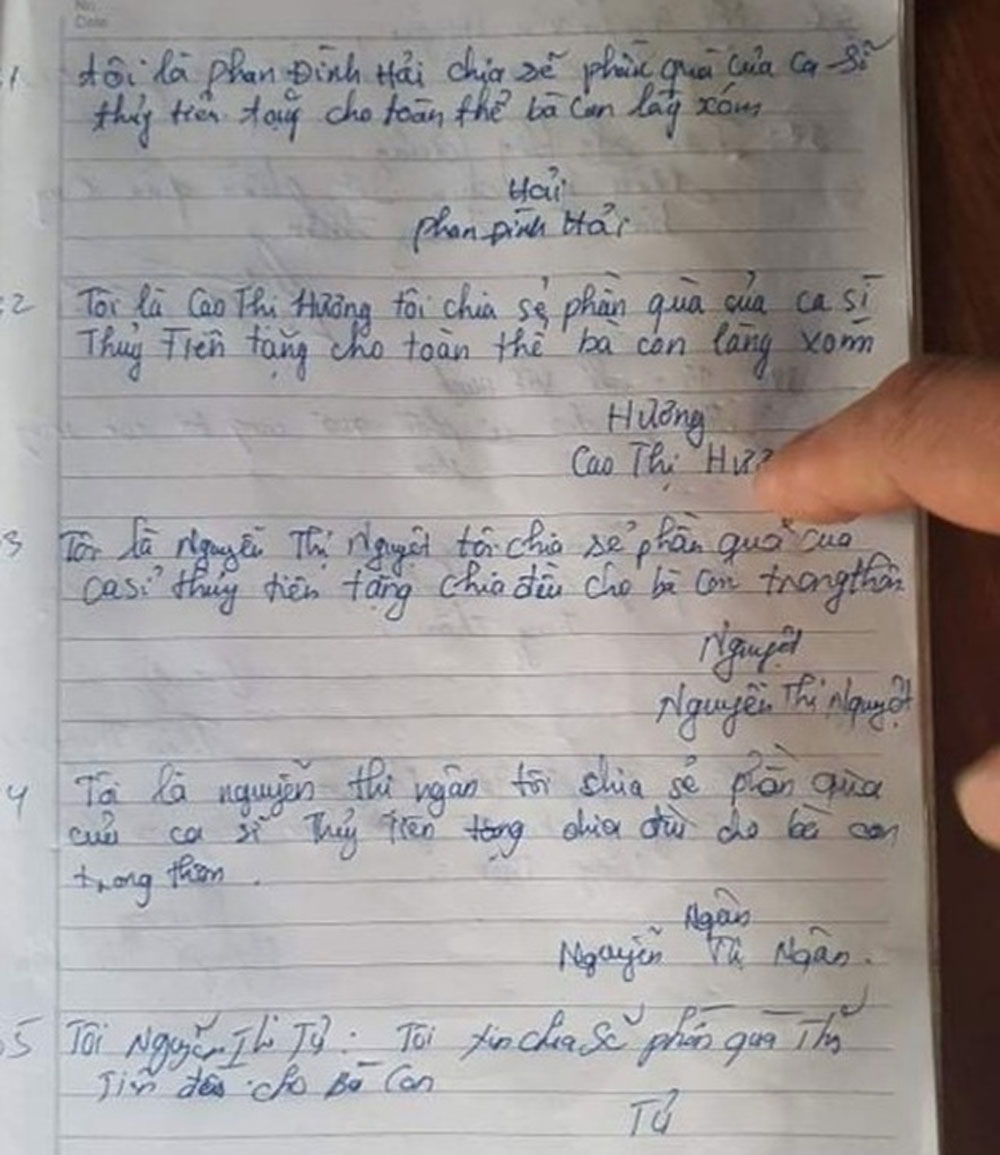 No.
Date
1 tôi là phan Đình Hải chia sẽ phần quà của ca sĩ
thủy tiên tặng cho toàn thể bà con làng xóm
Hải
phan Đình Hải
2 Tôi là Cao Thị Hương tôi chia sẻ phần quà của ca sĩ
Thủy Tiên tặng cho toàn thể bà con làng xóm
Hương
Cao Thị
3 Tôi là Nguyễn Thị Nguyệt tôi chia sẻ phần quà của
ca sĩ thủy tiên tặng chia đều cho bà con trong thôn
Nguyệt
Nguyễn Thị Nguyệt
4 Tôi là nguyễn thị ngân tôi chia sẻ phần qùa
của ca sĩ Thủy Tiên tặng chia đều cho bà con
trong thôn.
Ngân
Nguyễn Thị Ngân.
5 Tôi Nguyễn Thị Tứ. Tôi xin chia sẻ phần quà Thủy
Tiên đều cho Bà Con
Tứ